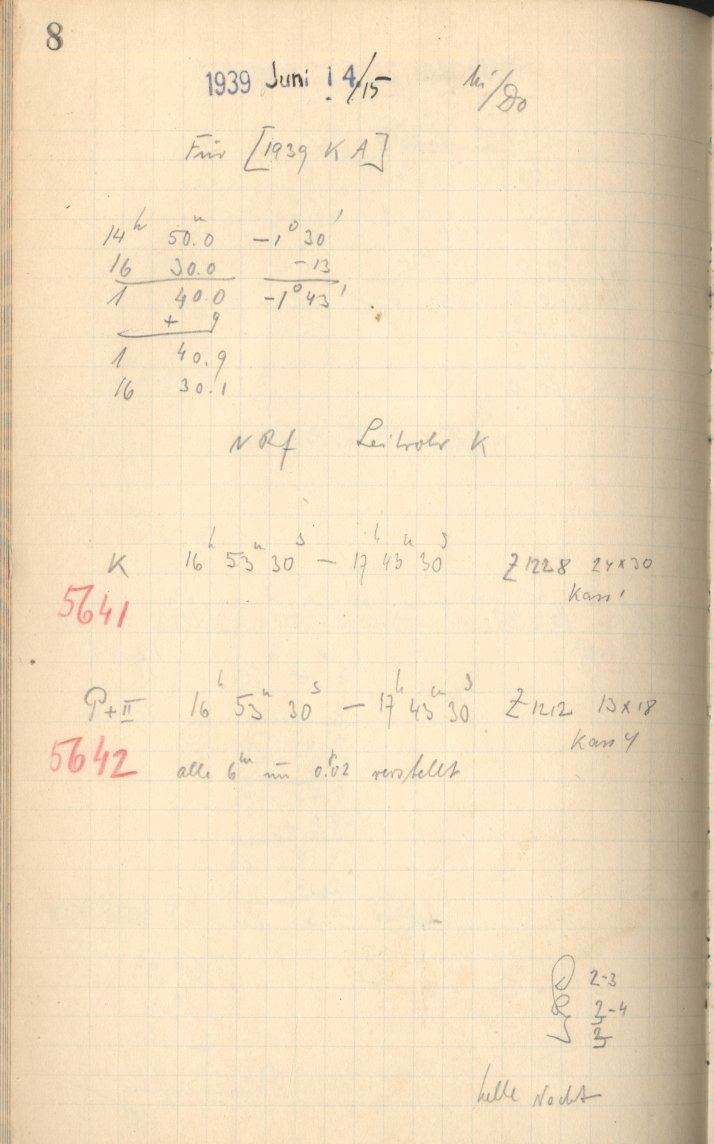 8
1939 Juni 14/15
Für [1939 K A]
14ʰ 50.0ᵐ -1° 30'
16 30.0 -13
1 40.0 -1° 43'
+ 9
1 40.9
16 30.1
NRf Leitrohr K
K 16ʰ 53ᵐ 30ˢ — 17ʰ 43ᵐ 30ˢ Z 1228 24×30
5641 Kass 1
P+II 16ʰ 53ᵐ 30ˢ — 17ʰ 43ᵐ 30ˢ Z 1212 13×18
Kass 4
5642 alle 6ᵐ um 0.02 verstellt
D 2-3
R 3-4
J 3
helle Nacht